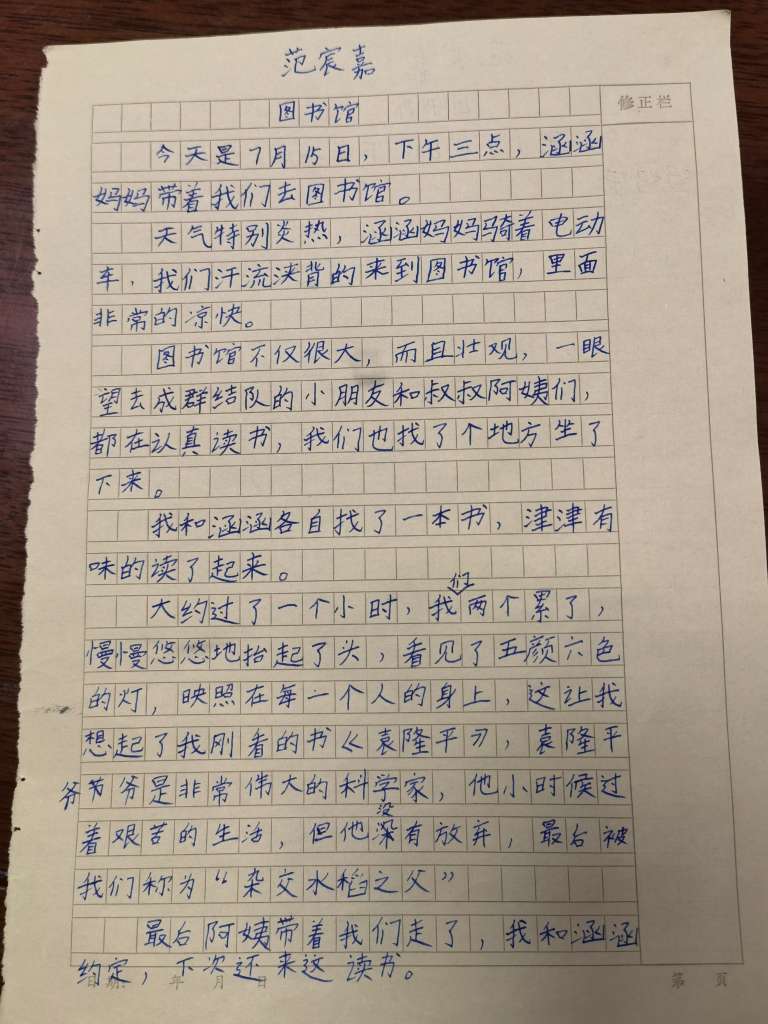 范宸嘉
图书馆
修正栏
今天是7月15日，下午三点，涵涵
妈妈带着我们去图书馆。
天气特别炎热，涵涵妈妈骑着电动
车，我们汗流浃背的来到图书馆，里面
非常的凉快。
图书馆不仅很大，而且壮观，一眼
望去成群结队的小朋友和叔叔阿姨们，
都在认真读书，我们也找了个地方坐了
下来。
我和涵涵各自找了一本书，津津有
味的读了起来。
大约过了一个小时，我们两个累了，
慢慢悠悠地抬起了头，看见了五颜六色
的灯，映照在每一个人的身上，这让我
想起了我刚看的书《袁隆平》，袁隆平
爷爷是非常伟大的科学家，他小时候过
着艰苦的生活，但他没有放弃，最后被
我们称为“杂交水稻之父”
最后阿姨带着我们走了，我和涵涵
约定，下次还来这读书。
日期： 年 月 日 第 页